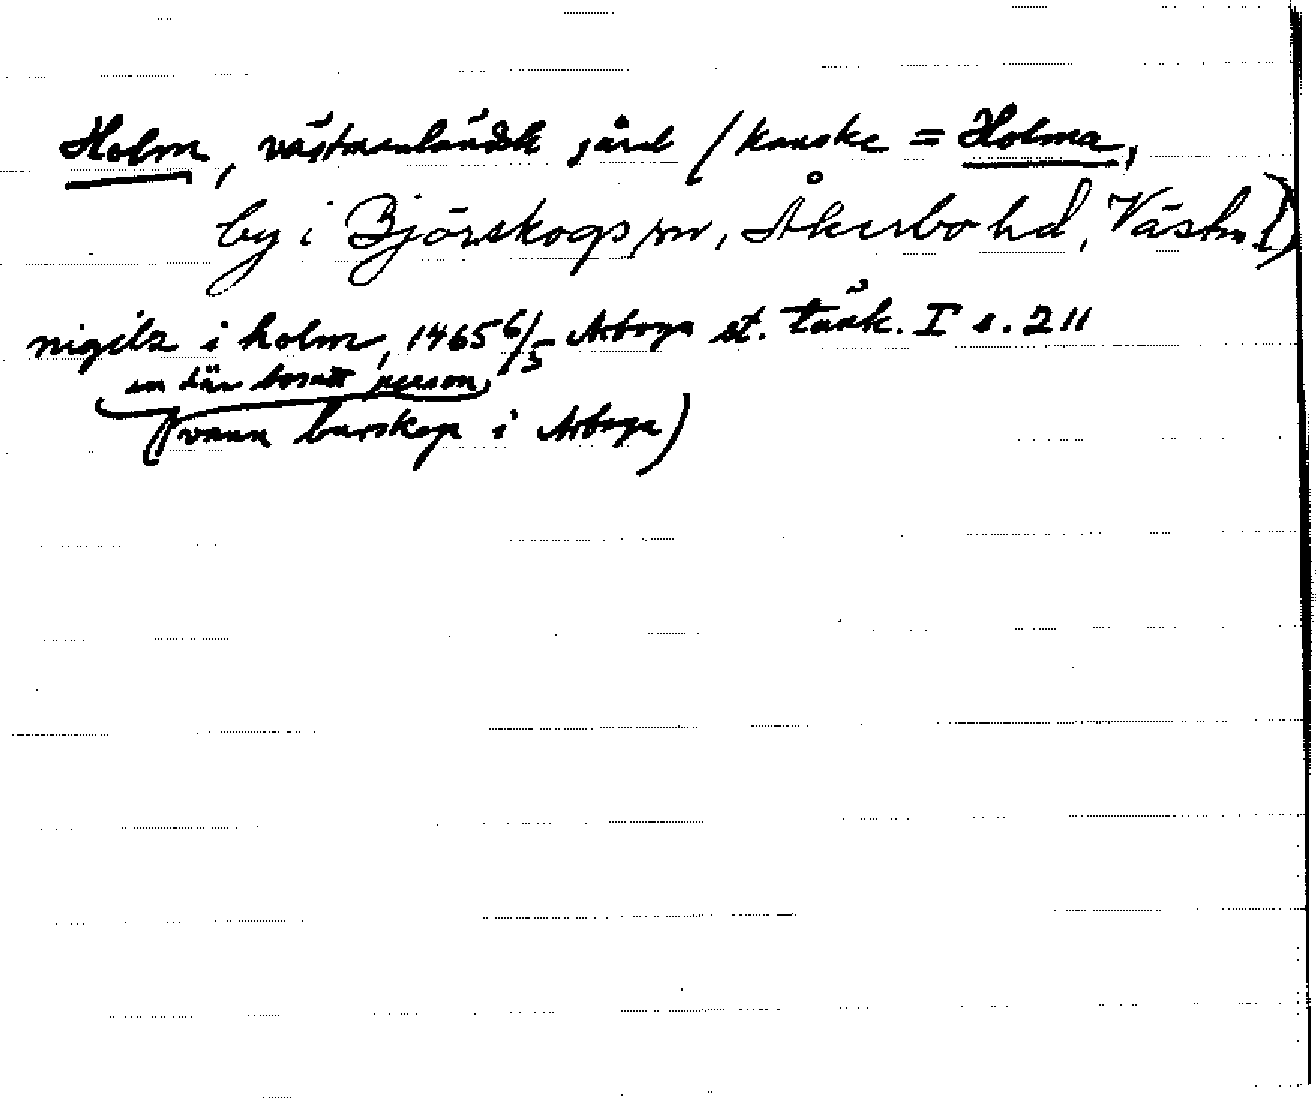 Holm, västmanländsk gård (kanske = Holma,
by i Björskogs sn, Åkerbo hd, Västm.)
nigils i holm, 1465 6/5 Arboga st. tänk. I s. 211
en där bosatt person
(vann burskap i Arboga)